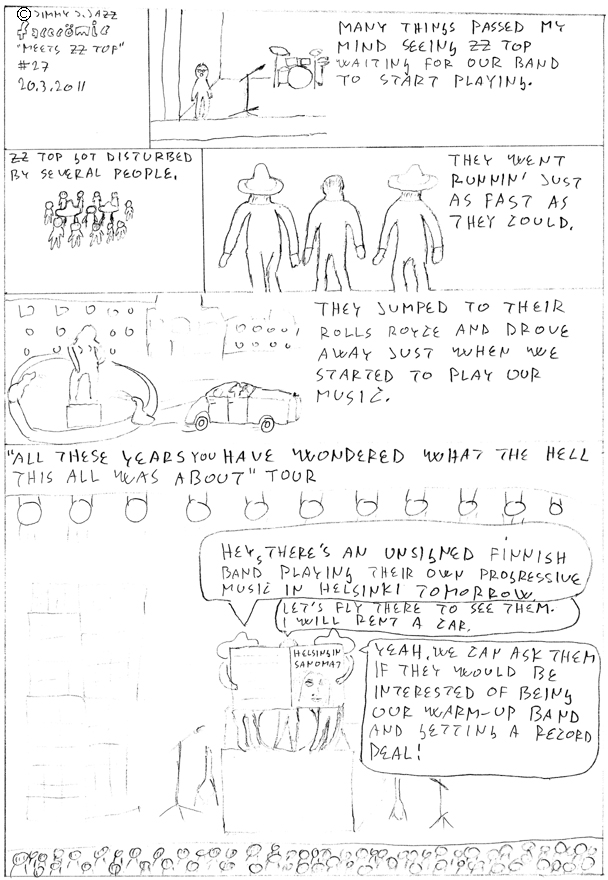 © JIMMY J. JAZZ
"MEETS ZZ TOP"
#27
20.3.2011
MANY THINGS PASSED MY
MIND SEEING ZZ TOP
WAITING FOR OUR BAND
TO START PLAYING.
ZZ TOP GOT DISTURBED
BY SEVERAL PEOPLE.
THEY WENT
RUNNIN' JUST
AS FAST AS
THEY COULD.
THEY JUMPED TO THEIR
ROLLS ROYCE AND DROVE
AWAY JUST WHEN WE
STARTED TO PLAY OUR
MUSIC.
"ALL THESE YEARS YOU HAVE WONDERED WHAT THE HELL
THIS ALL WAS ABOUT" TOUR
HEY, THERE'S AN UNSIGNED FINNISH
BAND PLAYING THEIR OWN PROGRESSIVE
MUSIC IN HELSINKI TOMORROW.
LET'S FLY THERE TO SEE THEM.
I WILL RENT A CAR.
HELSINGIN
SANOMAT
YEAH. WE CAN ASK THEM
IF THEY WOULD BE
INTERESTED OF BEING
OUR WARM-UP BAND
AND GETTING A RECORD
DEAL!